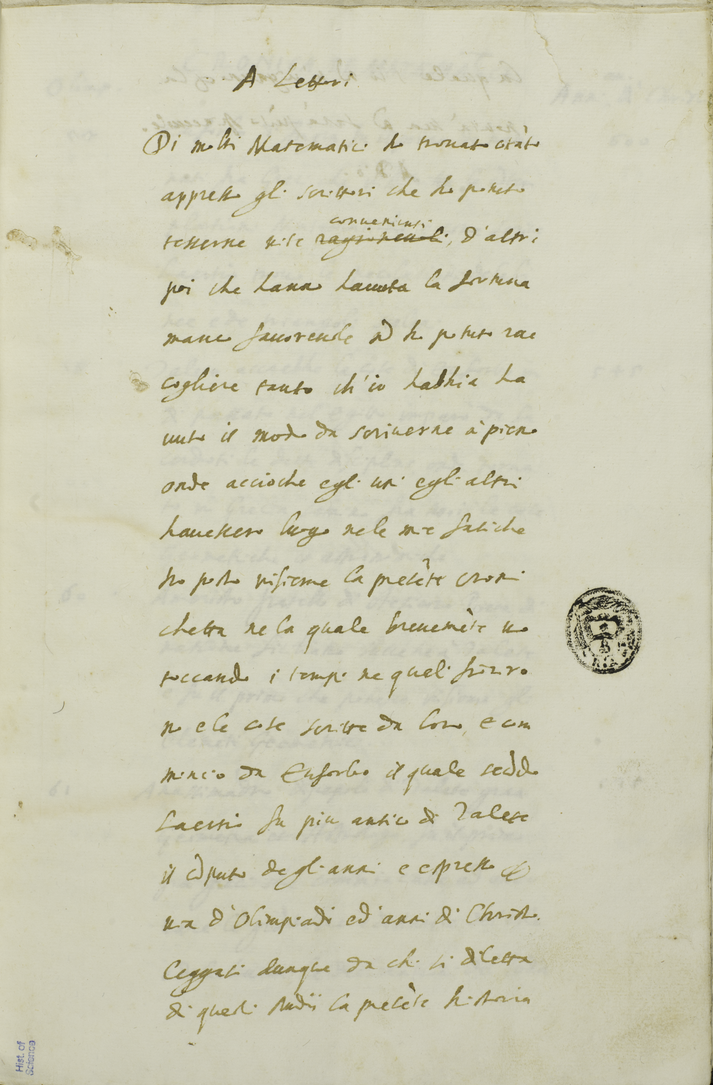 A Lettori
Di molti Matematici ho trovato tanto
appresso gli scrittori che ho potuto
tesserne vite convenienti
ragionevoli, d'altri
poi che hanno havuta la fortuna
manco favorevole nō ho potuto rac
cogliere tanto ch'io habbia ha
uuto il modo da scriverne à pieno
onde accioche egl'uni egl'altri
havessero luogo nele mie fatiche
ho posto insieme la presēte croni
chetta ne la quale brevemēte uo
toccando i tempi ne quali fioriro
no e le cose scritte da loro, e com
mincio da Euforbo il quale secōdo
Laertio fu piu antico di Talete
il cōputo degl'anni e espresso
via d'Olimpiadi ed'anni di Christo.
Leggasi dunque da chi si diletta
di questi studii la presēte historia
Hist. of
Science